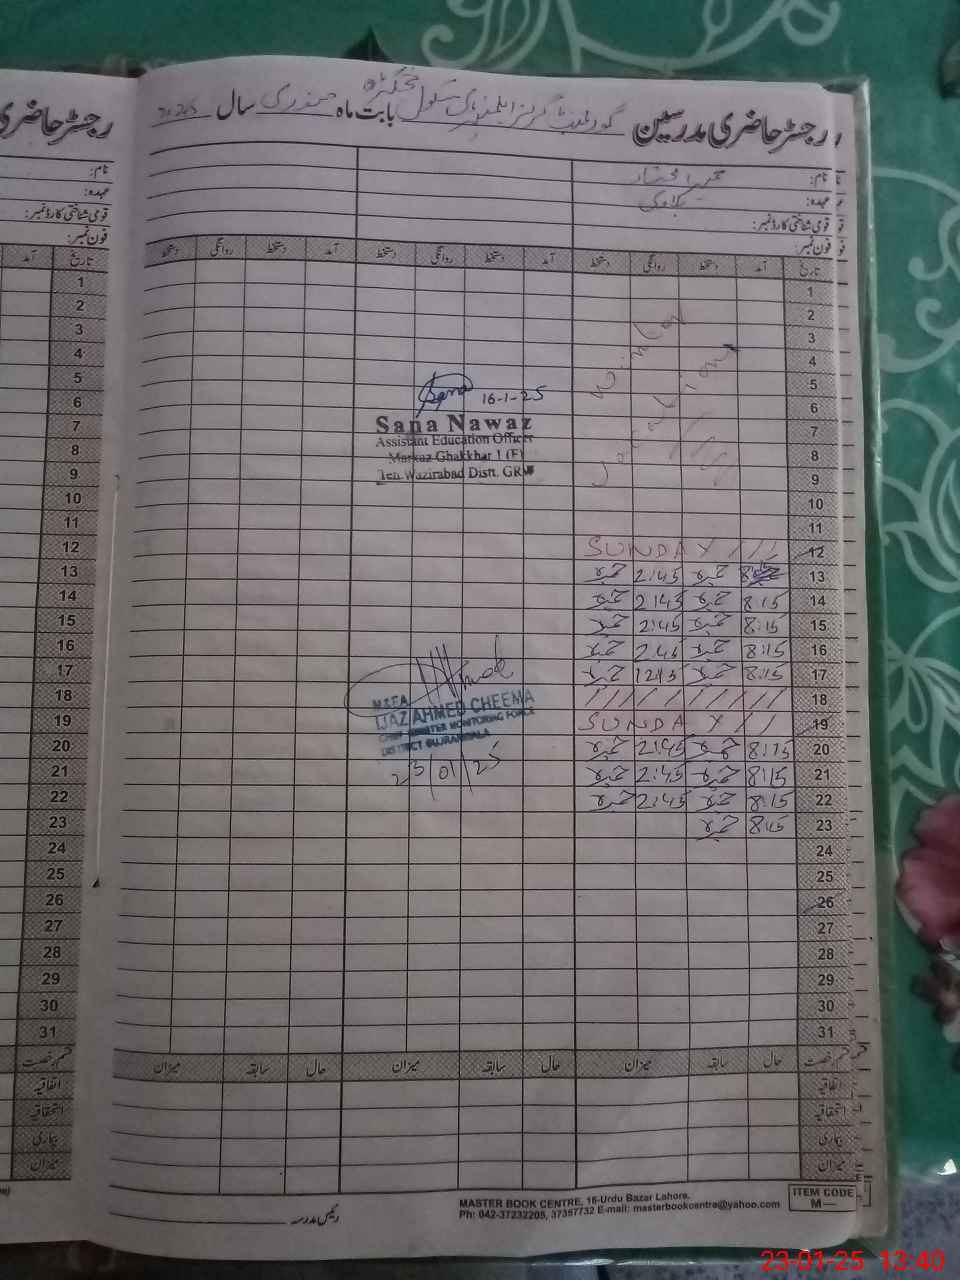 رجسٹر حاضری مدرسین گورنمنٹ گرلز ایلیمنٹری سکول بابت ماہ جنوری سال 2025
رجسٹر حاضری
نام:
عہدہ:
قومی شناختی کارڈ نمبر:
فون نمبر:
نام:
عہدہ:
قومی شناختی کارڈ نمبر:
فون نمبر:
تاریخ آمد دستخط روانگی دستخط آمد دستخط روانگی دستخط آمد دستخط روانگی دستخط
تاریخ آمد
1
2
3
4
5
6
7
8
9
10
11
12 SUNDAY
13 2:45
14 8:15 2:45
15 8:15 2:45
16 8:15 2:45
17 8:15 12:45
18
19 SUNDAY
20 8:15 2:45
21 8:15 2:45
22 8:15 2:45
23 8:15
24
25
26
27
28
29
30
31
Winter
Vacation
Sana 16-1-25
Sana Nawaz
Assistant Education Officer
Markaz Ghakkhar 1 (F)
Teh Wazirabad Distt. GRW
M.E.E.A
IJAZ AHMED CHEEMA
CHIEF MINISTER MONITORING FORCE
DISTRICT GUJRANWALA
23/01/25
قسم رخصت حال سابقہ میزان حال سابقہ میزان حال سابقہ میزان
اتفاقیہ
استحقاقیہ
بیماری
میزان
1
2
3
4
5
6
7
8
9
10
11
12
13
14
15
16
17
18
19
20
21
22
23
24
25
26
27
28
29
30
31
قسم رخصت
اتفاقیہ
استحقاقیہ
بیماری
میزان
رئیس مدرسہ
MASTER BOOK CENTRE, 16-Urdu Bazar Lahore.
Ph: 042-37232205, 37357732 E-mail: masterbookcentre@yahoo.com
ITEM CODE
M—
23-01-25 13:40